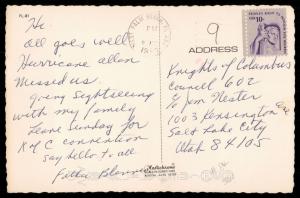 FL-81
Hi.
All goes well
Hurricane allen
Missed us.
Going Sightseeing
with my family
Leave Sunday for
K of C convention
say hello to all
Father
9
ADDRESS
Knights of Columbus
Council 602
c/o Jim Nester
1003 Kensington Ave
Salt Lake City
Utah 84105
PM
10c